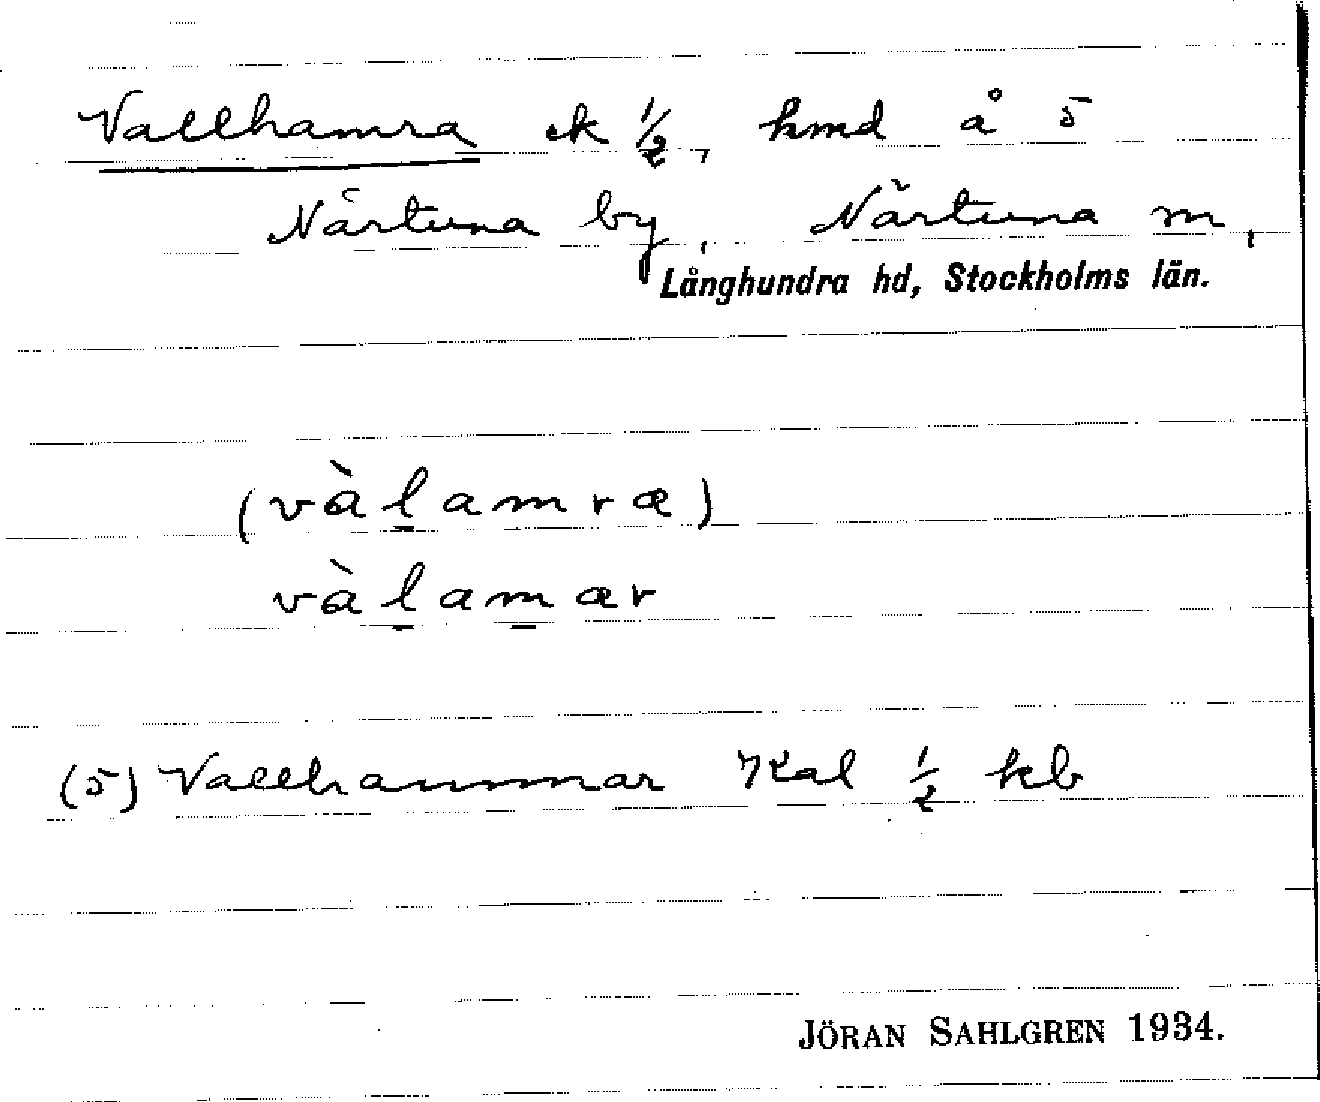 Vallhamra ek 1/2, hmd å 5
Närtuna by, Närtuna sn,
Långhundra hd, Stockholms län.
(vàl̲amræ)
vàl̲am̲ær
(5) Vallhammar Kal 1/2 kb
JÖRAN SAHLGREN 1934.